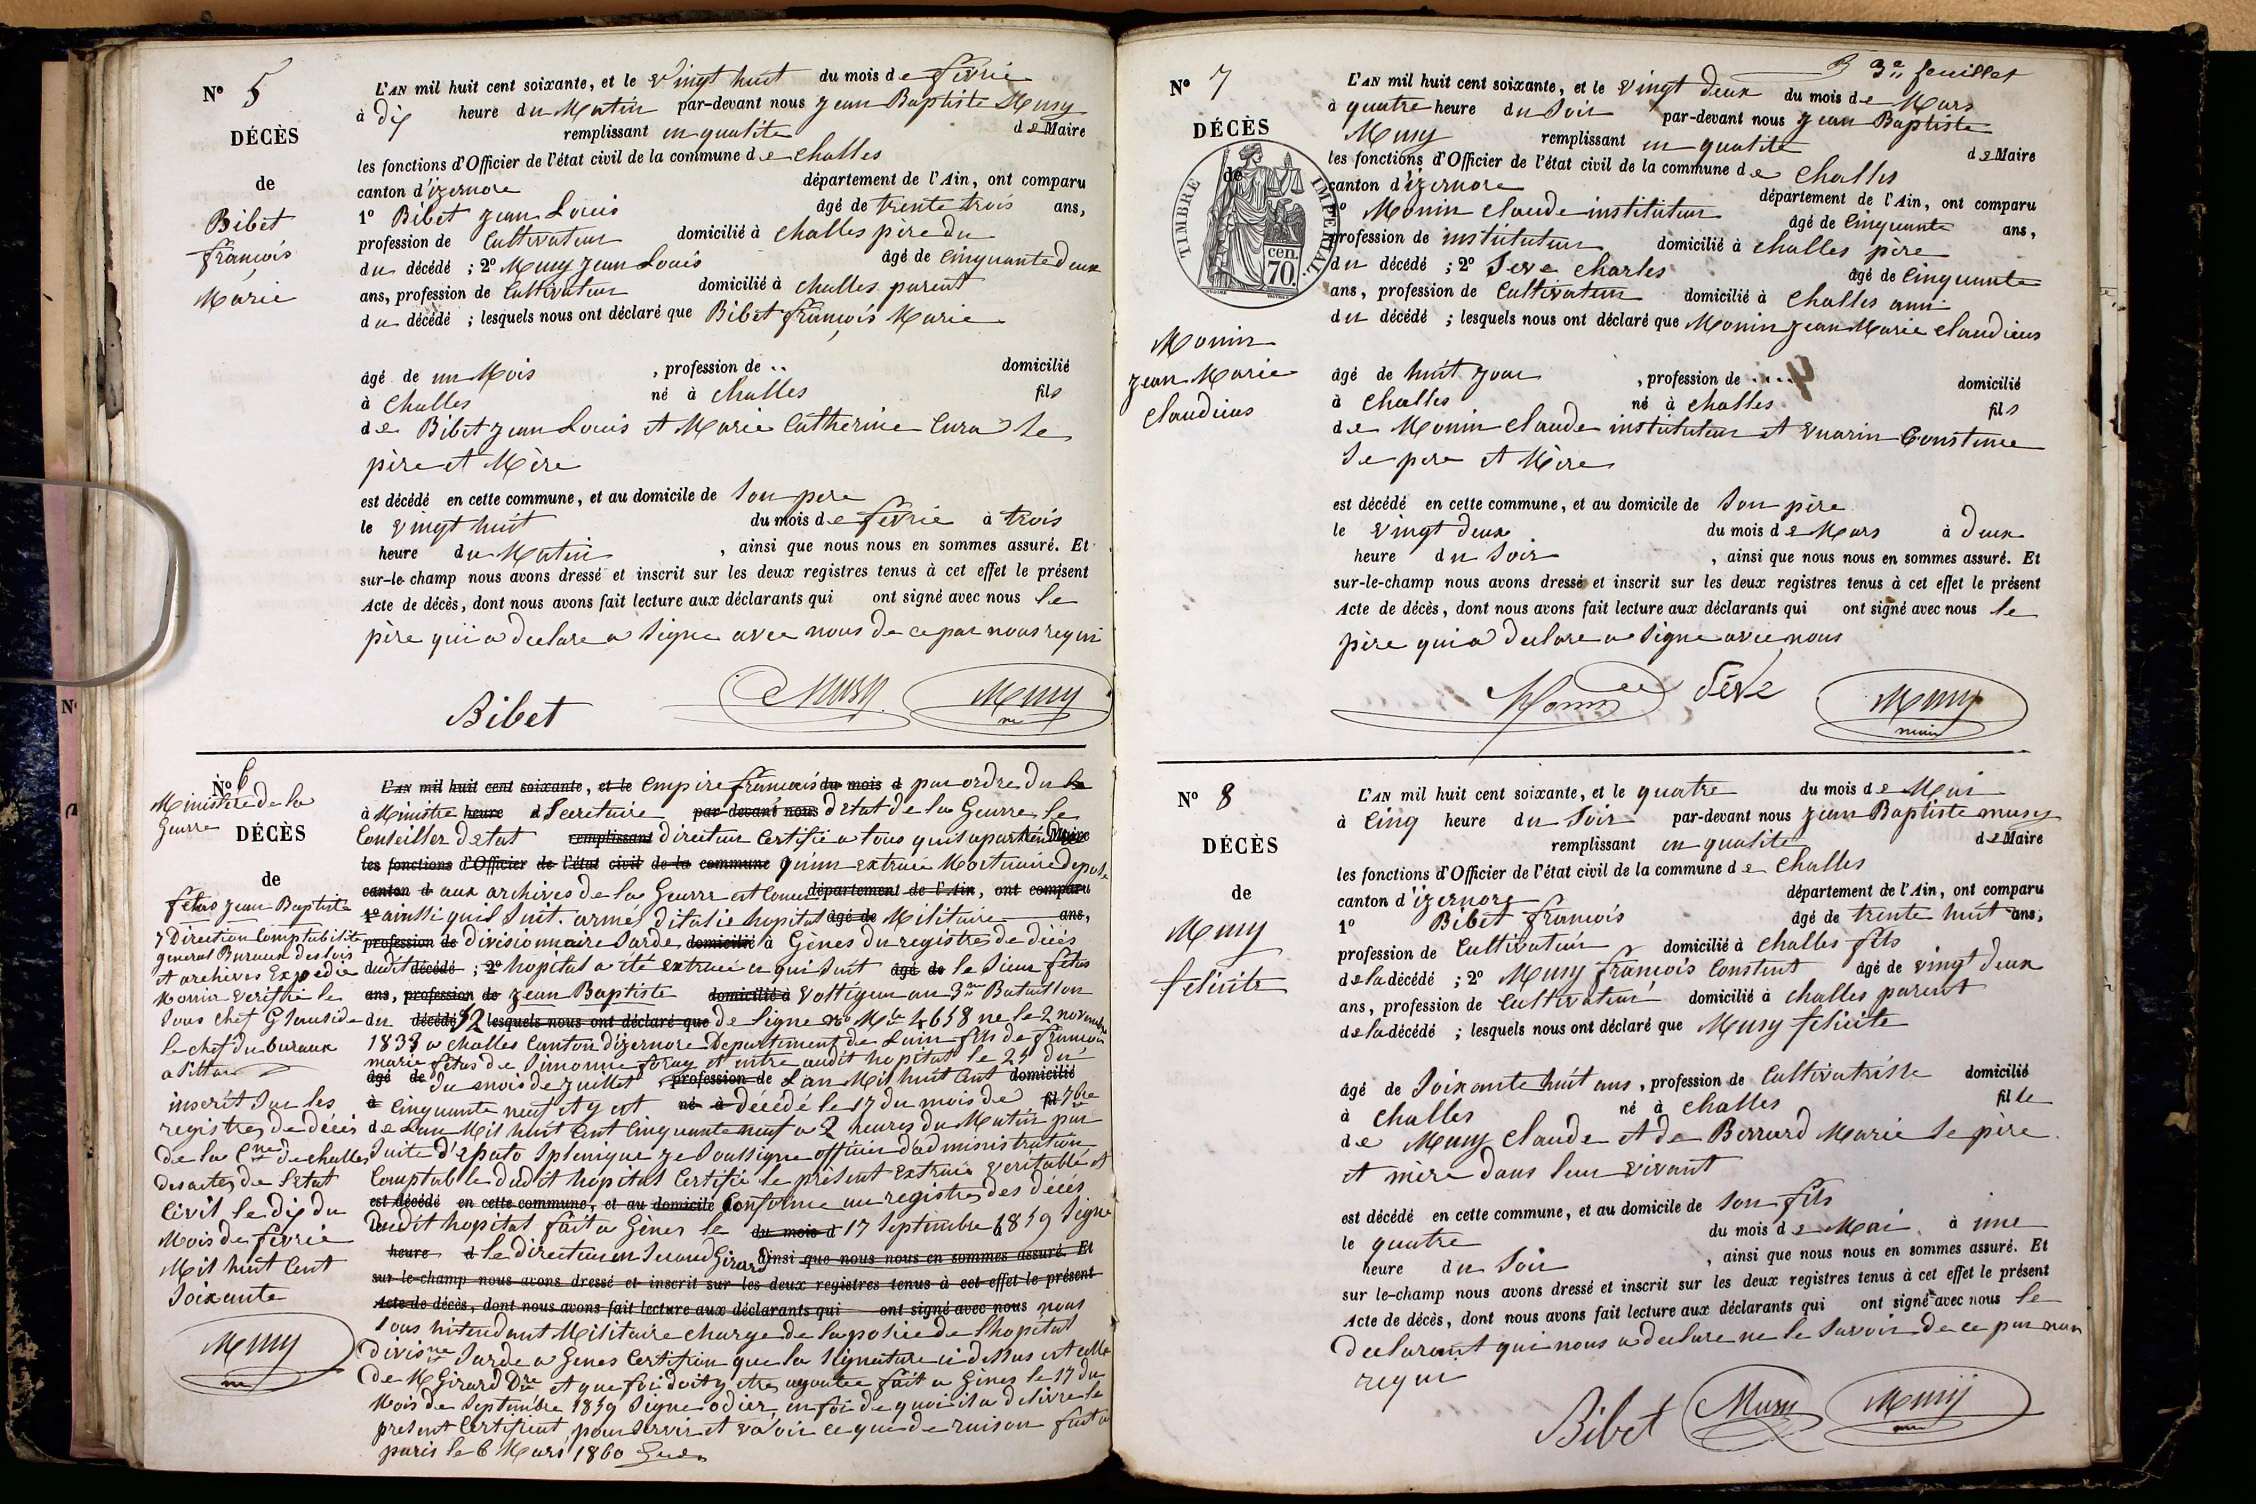 N° 5
DÉCÈS
de
Bibet
françois
Marie
L'AN mil huit cent soixante, et le vingt huit du mois de février
à dix heure du Matin par-devant nous jean Baptiste Musy
remplissant en qualité de Maire
les fonctions d'Officier de l'état civil de la commune de challes
canton d'izernore département de l'Ain, ont comparu
1° Bibet jean Louis âgé de trente trois ans,
profession de Cultivateur domicilié à challes père du
du décédé ; 2° Musy jean Louis âgé de cinquante deux
ans, profession de Cultivateur domicilié à challes parent
du décédé ; lesquels nous ont déclaré que Bibet françois Marie
âgé de un Mois , profession de .. domicilié
à challes né à challes fils
de Bibet jean Louis et Marie Catherine Cura se
père et Mère
est décédé en cette commune, et au domicile de son pere
le vingt huit du mois de février à trois
heure du Matin , ainsi que nous nous en sommes assuré. Et
sur-le-champ nous avons dressé et inscrit sur les deux registres tenus à cet effet le présent
Acte de décès, dont nous avons fait lecture aux déclarants qui ont signé avec nous le
père qui a declare a signe avec nous de ce par nous requi
Bibet Musy Musy
m
N° 6
Ministère de la
Guerre
DÉCÈS
de
fétas jean Baptiste
7 Direction Comptabilite
general Bureau des lois
et archives Expedie
Monin verifie le
sous chef
le chef du bureau
inscrit sur les
registres de décès
de la Cne de challes
des actes de l'etat
civil le dix du
Mois de fevrié
Mil huit cent
soixante
Musy
m
L'AN mil huit cent soixante, et le empire francais du mois d par ordre du
à Ministre heure d Secretaire par-devant nous d'état de la Guerre le
Conseiller detat remplissant directeur certifie a tous quil apartiendra Maire
les fonctions d'Officier de l'état civil de la commune qu'un extrait Mortuaire deposé
canton d aux archives de la Guerre est concu département de l'Ain, ont comparu
1° ainssi quil suit. armée ditalie hopital âgé de Militaire ans,
profession de divisionnaire Sarde domicilié à Gênes du registre de décés
dudit décédé ; 2° hopital a été extrait ce qui suit âgé de le Sieur fétas
ans, profession de jean Baptiste domicilié à voltigeur au 3me Bataillon
du décédé 52 lesquels nous ont déclaré que de ligne Mle 4658 ne le 2 novembre
1838 a challes Canton dizernore Departement de Lain fils de francois
marie fétas de Simonne foray et entre audit hopital le 25 du
âgé de du mois de juillet profession de L'an Mil huit cent domicilié
à cinquante neuf et y est né à décédé le 17 du mois de fil 7bre
de Lan Mil huit cent cinquante neuf a 2 heures du Matin par
suite d'epato splenique je soussigne officier d'administration
Comptable dudit hopital certifie le présent Extrait veritable et
est décédé en cette commune, et au domicile Conforme au registre des décès
dudit hopital fait a Gênes le du mois d 17 septembre à 1859 Signe
heure d le directeur en second Girard ainsi que nous nous en sommes assuré. Et
sur-le-champ nous avons dressé et inscrit sur les deux registres tenus à cet effet le présent
Acte de décès, dont nous avons fait lecture aux déclarants qui ont signé avec nous nous
sous intendant Militaire charge de la police de lhopital
divisne Sarde a Genes Certifion que la signature ci dessus est celle
de M Girard et que foi doit y etre ajoutee fait a Gènes le 17 du
Mois de Septembre 1859 Signe odier, en foi de quoi il a delivre le
present certificat pour servir et valoir ce que de raison fait a
paris le 6 Mars 1860
3e feuillet
N° 7
DÉCÈS
de
TIMBRE IMPERIAL.
70 cen.
Monin
jean Marie
claudius
L'AN mil huit cent soixante, et le vingt deux du mois de Mars
à quatre heure du Soir par-devant nous jean Baptiste
Musy remplissant en qualité de Maire
les fonctions d'Officier de l'état civil de la commune de challes
canton d'izernore département de l'Ain, ont comparu
1° Monin claude instituteur âgé de cinquante ans,
profession de instituteur domicilié à challes père
du décédé ; 2° Seve charles âgé de cinquante
ans, profession de Cultivateur domicilié à challes ami
du décédé ; lesquels nous ont déclaré que Monin jean Marie claudius
âgé de huit jour , profession de .... domicilié
à challes né à challes fils
de Monin claude instituteur et vuarin Constance
se pere et Mère
est décédé en cette commune, et au domicile de son père
le vingt deux du mois de Mars à deux
heure du Soir , ainsi que nous nous en sommes assuré. Et
sur-le-champ nous avons dressé et inscrit sur les deux registres tenus à cet effet le présent
Acte de décès, dont nous avons fait lecture aux déclarants qui ont signé avec nous le
père qui a declare a signe avec nous
Monin Séve Musy
maire
N° 8
DÉCÈS
de
Musy
felicite
L'AN mil huit cent soixante, et le quatre du mois de Mai
à cinq heure du Soir par-devant nous jean Baptiste musy
remplissant en qualité de Maire
les fonctions d'Officier de l'état civil de la commune de challes
canton d'izernore département de l'Ain, ont comparu
1° Bibet françois âgé de trente huit ans,
profession de Cultivateur domicilié à challes fils
de la décédé ; 2° Musy françois Constent âgé de vingt deux
ans, profession de Cultivateur domicilié à challes parent
de la décédé ; lesquels nous ont déclaré que Musy felicite
âgé de soixante huit ans , profession de Cultivatrisse domicilié
à challes né à challes fille
de Musy claude et de Berrard Marie se père
et mère dans leur vivant
est décédé en cette commune, et au domicile de son fils
le quatre du mois de Mai à une
heure du Soir , ainsi que nous nous en sommes assuré. Et
sur le-champ nous avons dressé et inscrit sur les deux registres tenus à cet effet le présent
Acte de décès, dont nous avons fait lecture aux déclarants qui ont signé avec nous le
declarant qui nous a declare ne le savoir de ce par nous
requi
Bibet Musy Musy